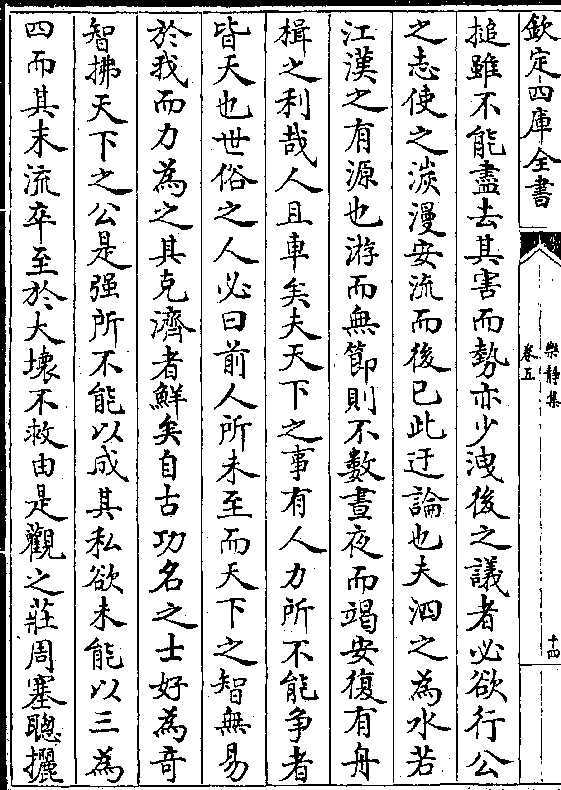 欽定四庫全書
樂靜集
卷五
十四
搥雖不能盡去其害而勢亦少洩後之議者必欲行公
之志使之漭漫安流而後已此迂論也夫泗之為水若
江漢之有源也游而無節則不數晝夜而竭安復有舟
楫之利哉人且車矣夫天下之事有人力所不能争者
皆天也世俗之人必曰前人所未至而天下之智無易
於我而力為之其克濟者鮮矣自古功名之士好為奇
智拂天下之公是强所不能以成其私欲未能以三為
四而其末流卒至於大壞不救由是觀之莊周塞聰攦